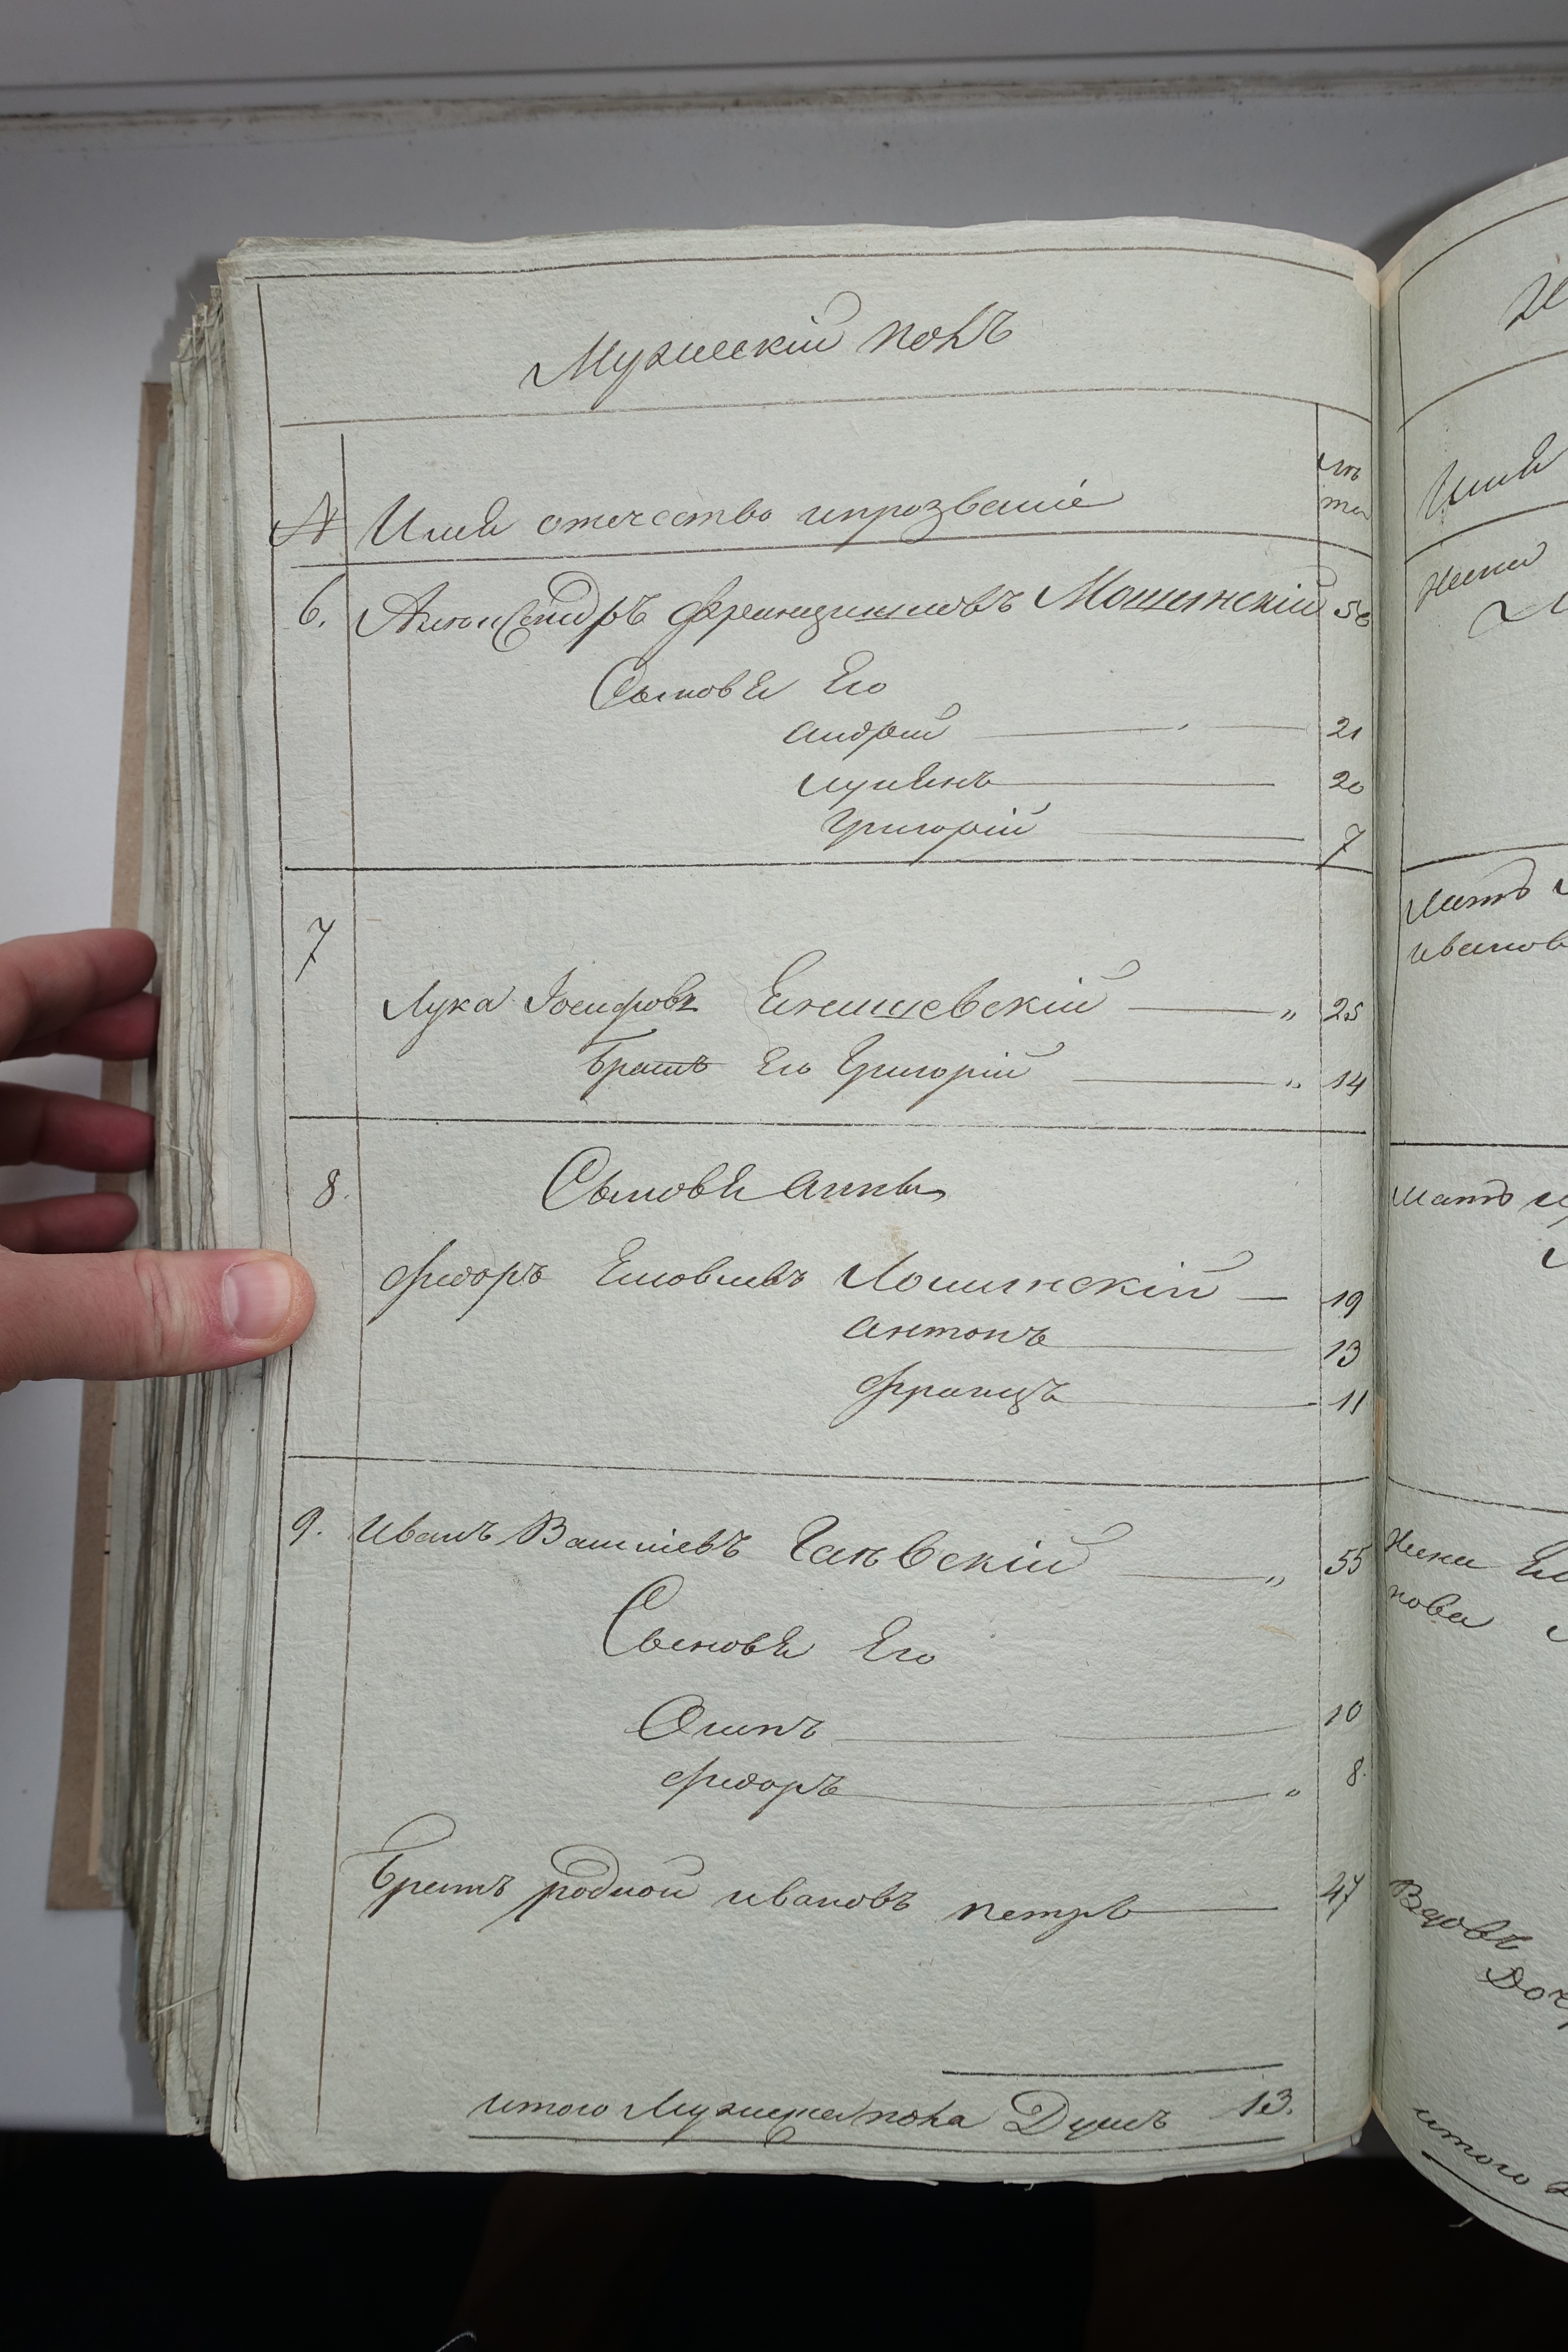 Мужескій полъ
№ Имя отечество ипрозваніе лѣ
та
6. Александръ Францишковъ Мошинскій 56
Сыновья Его
андрей 21
лукянъ 20
Григорій 7
7
Лука Іосифовъ Енишевскій „ 25
братъ Его Григорій „ 14
8. Сыновья анны
федоръ Яковлевъ Лошинскій 19
антонъ 13
францъ 11
9. иванъ Васильевъ Гаевскій „ 55
Сыновья Его
Осипъ 10
федоръ „ 8.
братъ родной ивановъ петръ 47
итого Мужеска пола Душъ 13.
Имя
жена
Мать
иванов
мать
Жена
нова
Вдова
Доч
итого